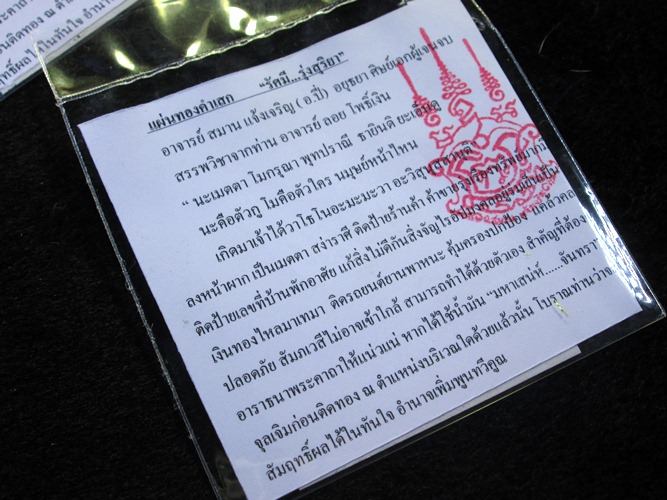 แผ่นทองคำเสก "รัศมี...รุ่งสุริยา"
อาจารย์ สมาน แจ้งเจริญ (อ.ปี๋) อยุธยา ศิษย์เอกผู้เจนจบ
สรรพวิชาจากท่าน อาจารย์ ลอย โพธิ์เงิน
" นะเมตตา โมกรุณา พุทปราณี ธายินดี ยะเอ็นดู
นะคือตัวกู โมคือตัวใคร มนุษย์หน้าไหน
เกิดมาเจ้าได้วาโธโนอะมะมะวา
ลงหน้าผาก เป็นเมตตา สง่าราศี ติดป้ายร้านค้า ค้าขายรุ่งเรืองทรัพย์มาก
ติดป้ายเลขที่บ้านพักอาศัย แก้สิ่งไม่ดีกันสิ่งจัญไร
เงินทองไหลมาเทมา ติดรถยนต์ยานพาหนะ คุ้มครองปกป้อง แคล้วคลา
ปลอดภัย สัมภเวสีไม่อาจเข้าใกล้ สามารถทำได้ด้วยตัวเอง สำคัญที่ต้อง
อาราธนาพระคาถาให้แน่วแน่ หากได้ใช้น้ำมัน "มหาเสน่ห์......จันทรา"
จุลเจิมก่อนติดทอง ณ ตำแหน่งบริเวณใดด้วยแล้วนั้น โบราณท่านว่าจะ
สัมฤทธิ์ผลได้ในทันใจ อำนาจเพิ่มพูนทวีคูณ